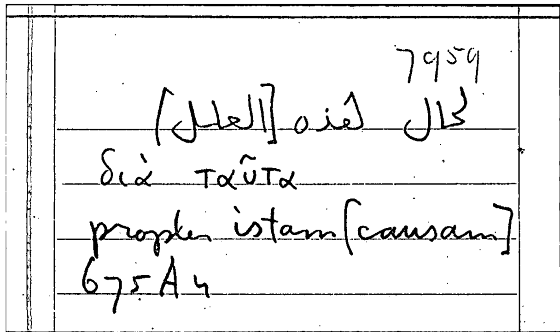 7959
لحال هذه [العلل]
διὰ ταῦτα
propter istam [causam]
675A4